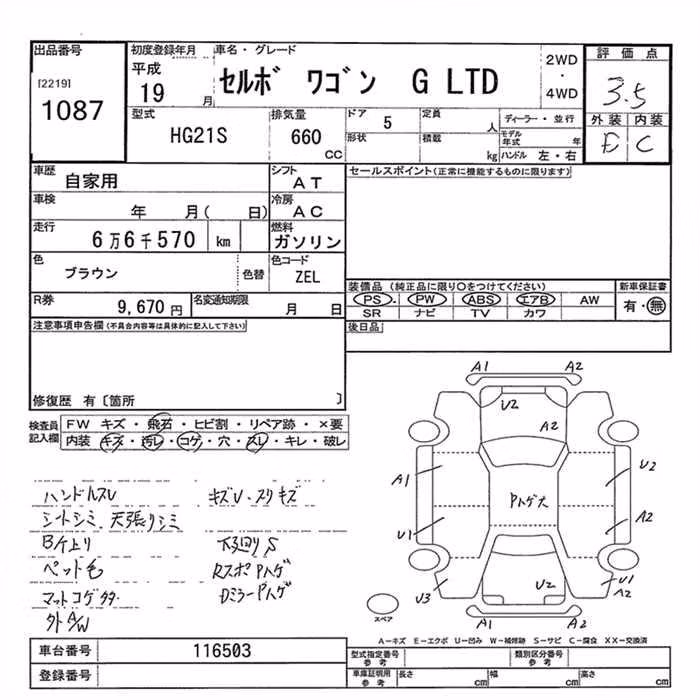 出品番号
[2219]
1087
初度登録年月
平成
19 月
車名・グレード
セルボ ワゴン G LTD
2WD
・
4WD
評価点
3.5
外装 内装
E C
型式
HG21S
排気量
660
cc
ドア
5
定員
人
形状
積載
kg
ディーラー・並行
モデル年式 年
ハンドル 左・右
車歴
自家用
シフト
AT
車検
年 月( 日)
冷房
AC
走行
6万6千570 km
燃料
ガソリン
色
ブラウン
色替
色コード
ZEL
R券
9,670 円
名変通知期限
月 日
セールスポイント(正常に機能するものに限ります)
装備品 (純正品に限り○をつけてください)
PS PW ABS エアB AW
SR ナビ TV カワ
新車保証書
有・無
後日品
注意事項申告欄(不具合内容等は具体的に記入して下さい)
修復歴 有〔箇所 〕
検査員記入欄
FW キズ・飛石・ヒビ割・リペア跡・×要
内装 キズ・汚レ・コゲ・穴・スレ・キレ・破レ
ハンドルスレ キズU・スリキズ
シートシミ 天張りシミ
Bケ上り 下廻りS
ペット毛 Rスポハゲ
マットコゲ Dミラーハゲ
外A/W
A1 A2
U2
A2
A1
U2
Pハゲ大
U1
A2
U3
U2
U1
A2
A1 A2
スペア
A−キズ E−エクボ U−凹み W−補修跡 S−サビ C−腐食 XX−交換済
車台番号
116503
登録番号
型式指定番号
参考
類別区分番号
参考
車庫証明用
参考
長さ cm
幅 cm
高さ cm